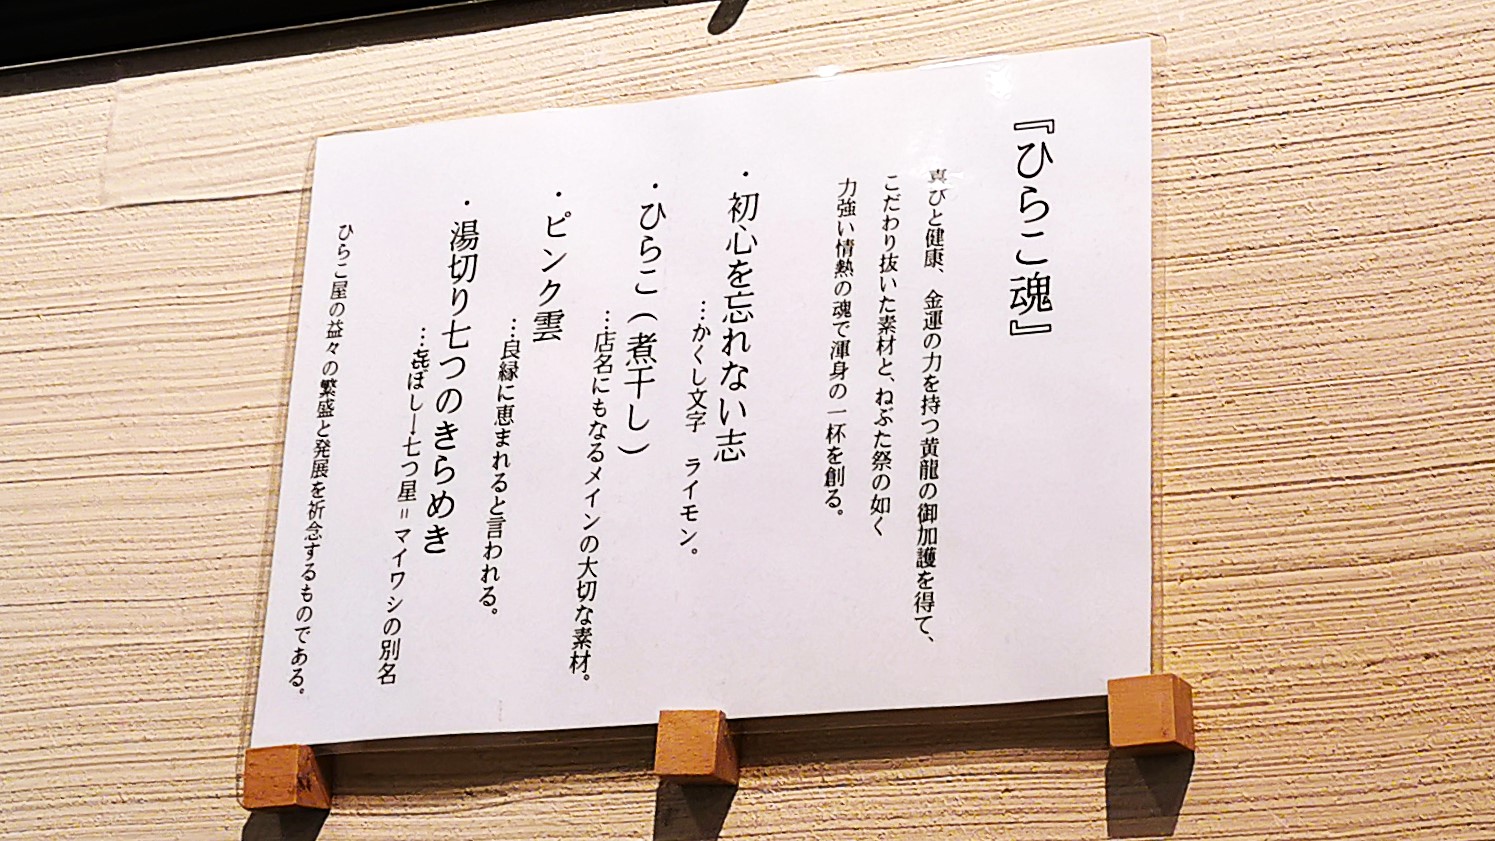 『ひらこ魂』
喜びと健康、金運の力を持つ黄龍の御加護を得て、
こだわり抜いた素材と、ねぶた祭の如く
力強い情熱の魂で渾身の一杯を創る。
・初心を忘れない志
…かくし文字　ライモン。
・ひらこ（煮干し）
…店名にもなるメインの大切な素材。
・ピンク雲
…良縁に恵まれると言われる。
・湯切り七つのきらめき
…㐂ぼし→七つ星＝マイワシの別名
ひらこ屋の益々の繁盛と発展を祈念するものである。